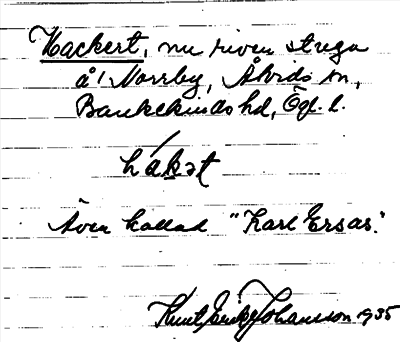 Hackert, nu riven stuga
å Norrby, Åtvids sn,
Bankekinds hd, Ögl. l.
hákət
Även kallad "Karl Ersas".
Knut Erik Johansson 1935